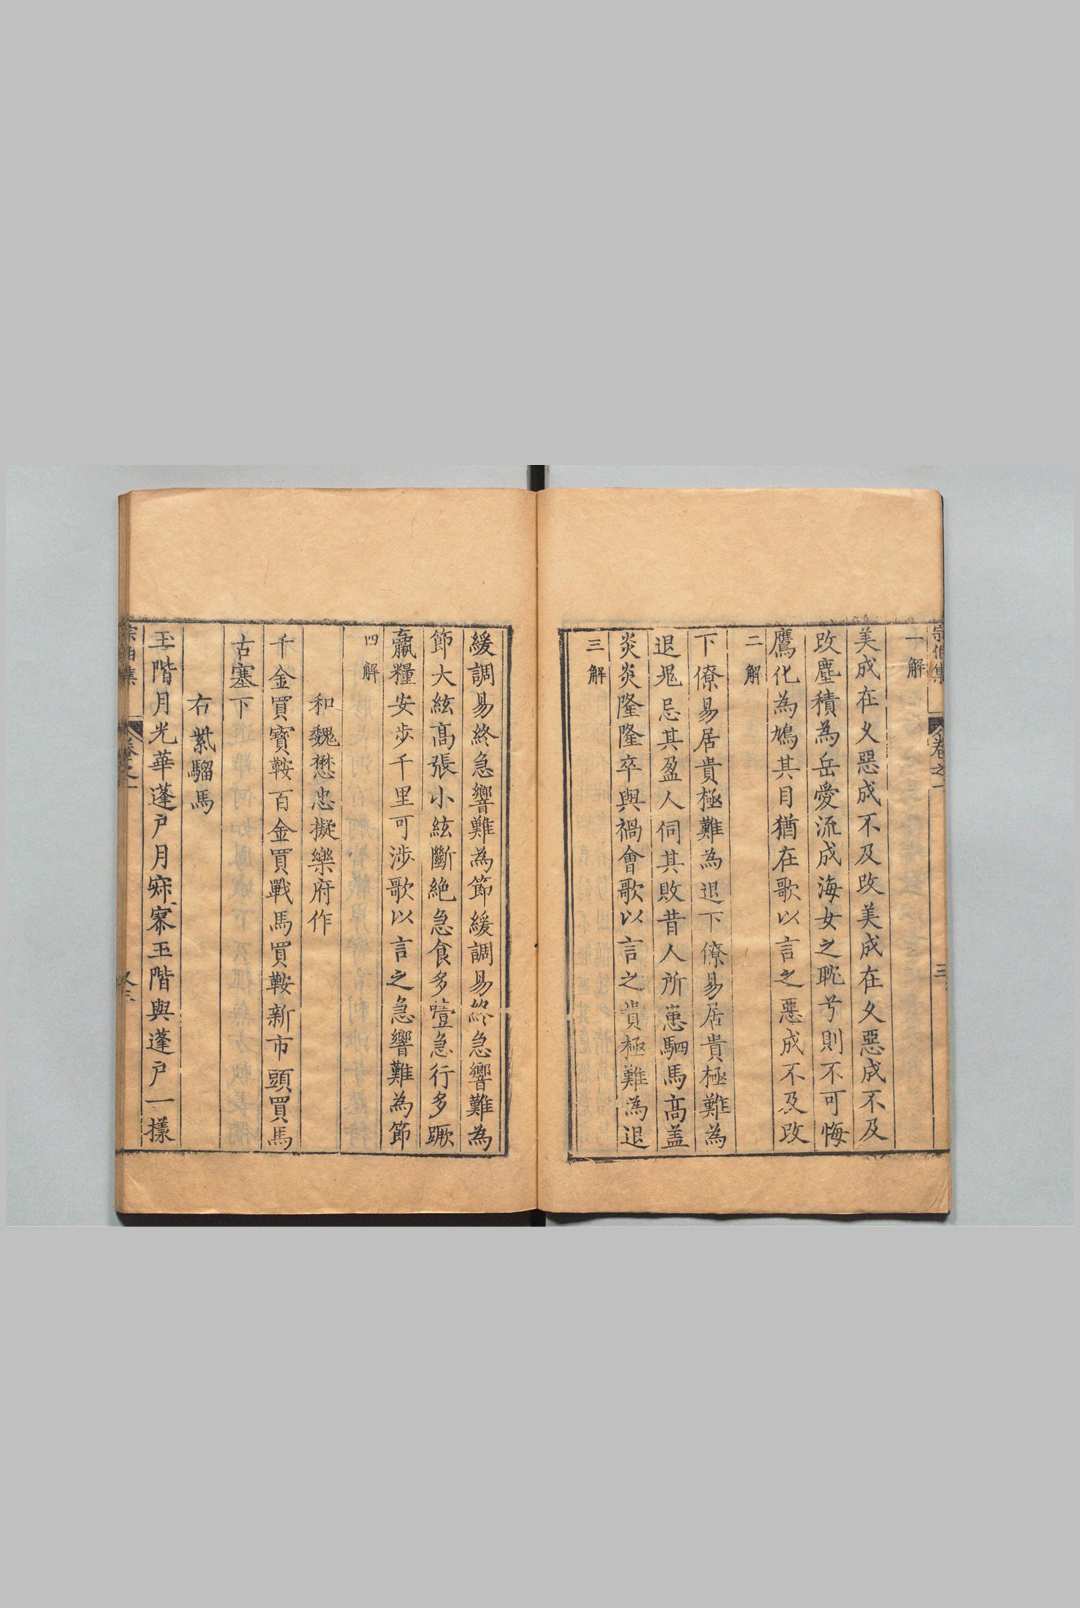 宗伯集
卷之一
三
一解
美成在久惡成不及改美成在久惡成不及
改塵積為岳愛流成海女之耽兮則不可悔
鷹化為鳩其目猶在歌以言之惡成不及改
二解
下僚易居貴極難為退下僚易居貴極難為
退鬼忌其盈人伺其敗昔人所患駟馬高盖
炎炎隆隆卒與禍會歌以言之貴極難為退
三解
緩調易終急響難為節緩調易終急響難為
節大絃高張小絃斷絕急食多噎急行多蹶
羸糧安步千里可涉歌以言之急響難為節
四解
和魏懋忠擬樂府作
千金買寶鞍百金買戰馬買鞍新市頭買馬
古塞下
右紫騮馬
玉階月光華蓬戶月寂寥玉階與蓬戶一樣
宗伯集
卷之一